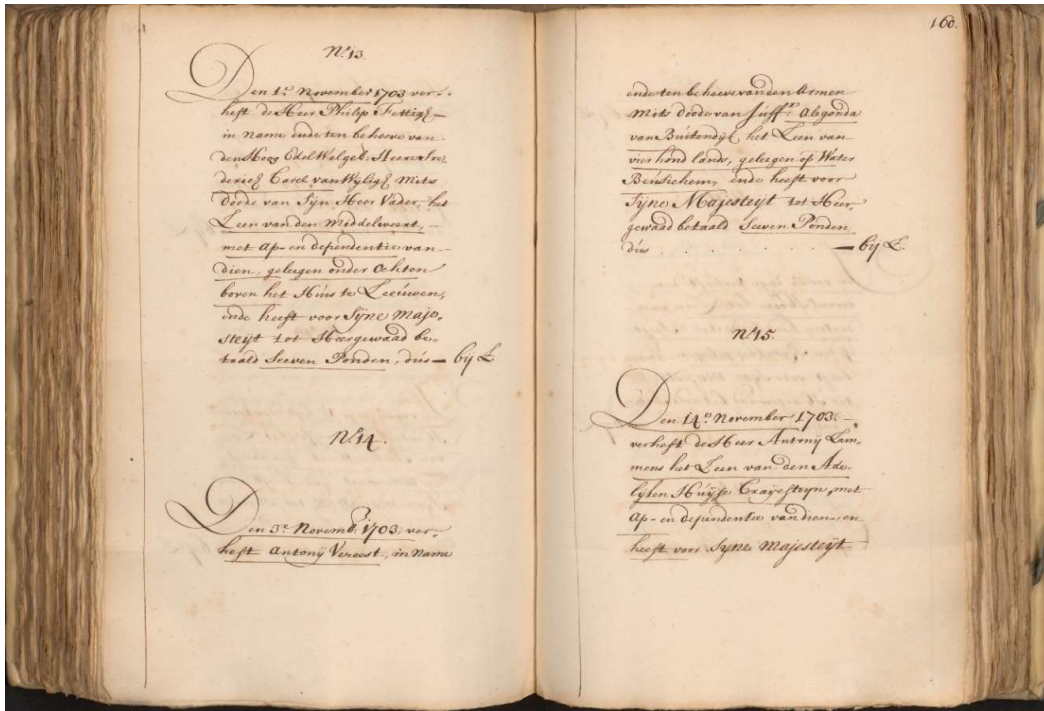 No. 13.
Den 1e. November 1703 ver-
heft de Heer Philip Fettigh
in name ende ten behoeve van
den Hoog Edel Welgeb: Heere Fre
derich Carel van Wyligh mits
doode van Syn Heer Vader, het
Leen van den Middelweert,
met Ap- en dependentie van
dien, gelegen onder Ochten
boven het Huis te Leeuwen,
ende heeft voor Syne Maje-
steijt tot Heergewaad be-
taald Seeven Ponden, dus — bij £
No. 14.
Den 3e. Novemb: 1703. ver-
heft Antonij Vereest, in name
160.
ende ten behoeve van den Armen
mits doode van Juffr. Alegonda
van Buitendyk, het Leen van
vier hond lands, gelegen op Water
Beusichem, ende heeft voor
Syne Majesteijt tot Heer-
gewaad betaald Seeven Ponden,
dus . . . . . — bij £.
No. 15.
Den 14e. November 1703.
verheft de Heer Antonij Lam-
mens het Leen van den Ade-
lijken Huijse Crayesteyn, met
Ap- en dependentie van dien, en
heeft voor Syne Majesteijt